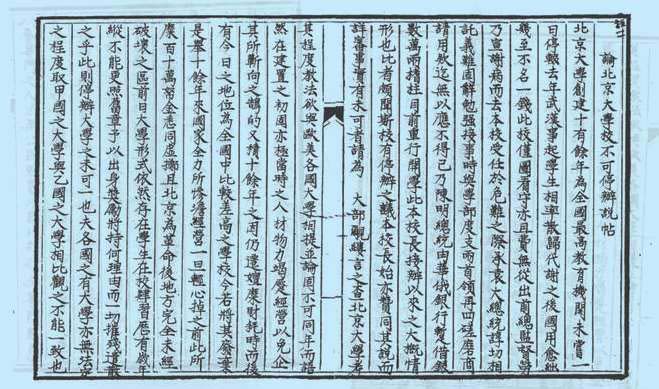 論北京大學校不可停辦說帖
北京大學創建十有餘年為全國最高教育機關未嘗一
日停輟去年武漢事起學生相率散歸代謝之後國用愈絀
幾至不名一錢此校僅圖看守亦且費無從出前總監督勞
乃宣謝病而去本校受任於危難之際承袁大總統諄切相
託義難固辭勉強接事時與學部度支兩首領再四磋磨商
請用款迄無以應不得已乃陳明總統由華俄銀行暫借銀
數萬兩搘拄目前重行開學此本校長接辦以來之大概情
形也比者頗聞斯校有停辦之議本校長始亦贊同其說而
詳審事實有未可者請為 大部覼縷言之查北京大學考
其程度教法欲與歐美各國大學相提並論固不可同年而語
然在建置之初固亦極當時之人材物力竭慶經營以免企
其所蘄向之鵠的又積十餘年之因仍遭嬗糜財耗時而後
有今日之地位為全國中比較差高之學校今若將其廢棄
是舉十餘年來國家全力所慘澹經營一旦輕心掉之前此所
糜百十萬帑金悉同虛擲且北京為革命後地方完全未經
破壞之區前日大學形式依然存在學生在校肄習歷有歲年
縱不能更照舊章予以出身獎勵將持何理由而一切摧殘遣散
之乎此則停辦大學之未可一也夫各國之有大學亦無法定
之程度取甲國之大學與乙國之大學相比觀之不能一致也